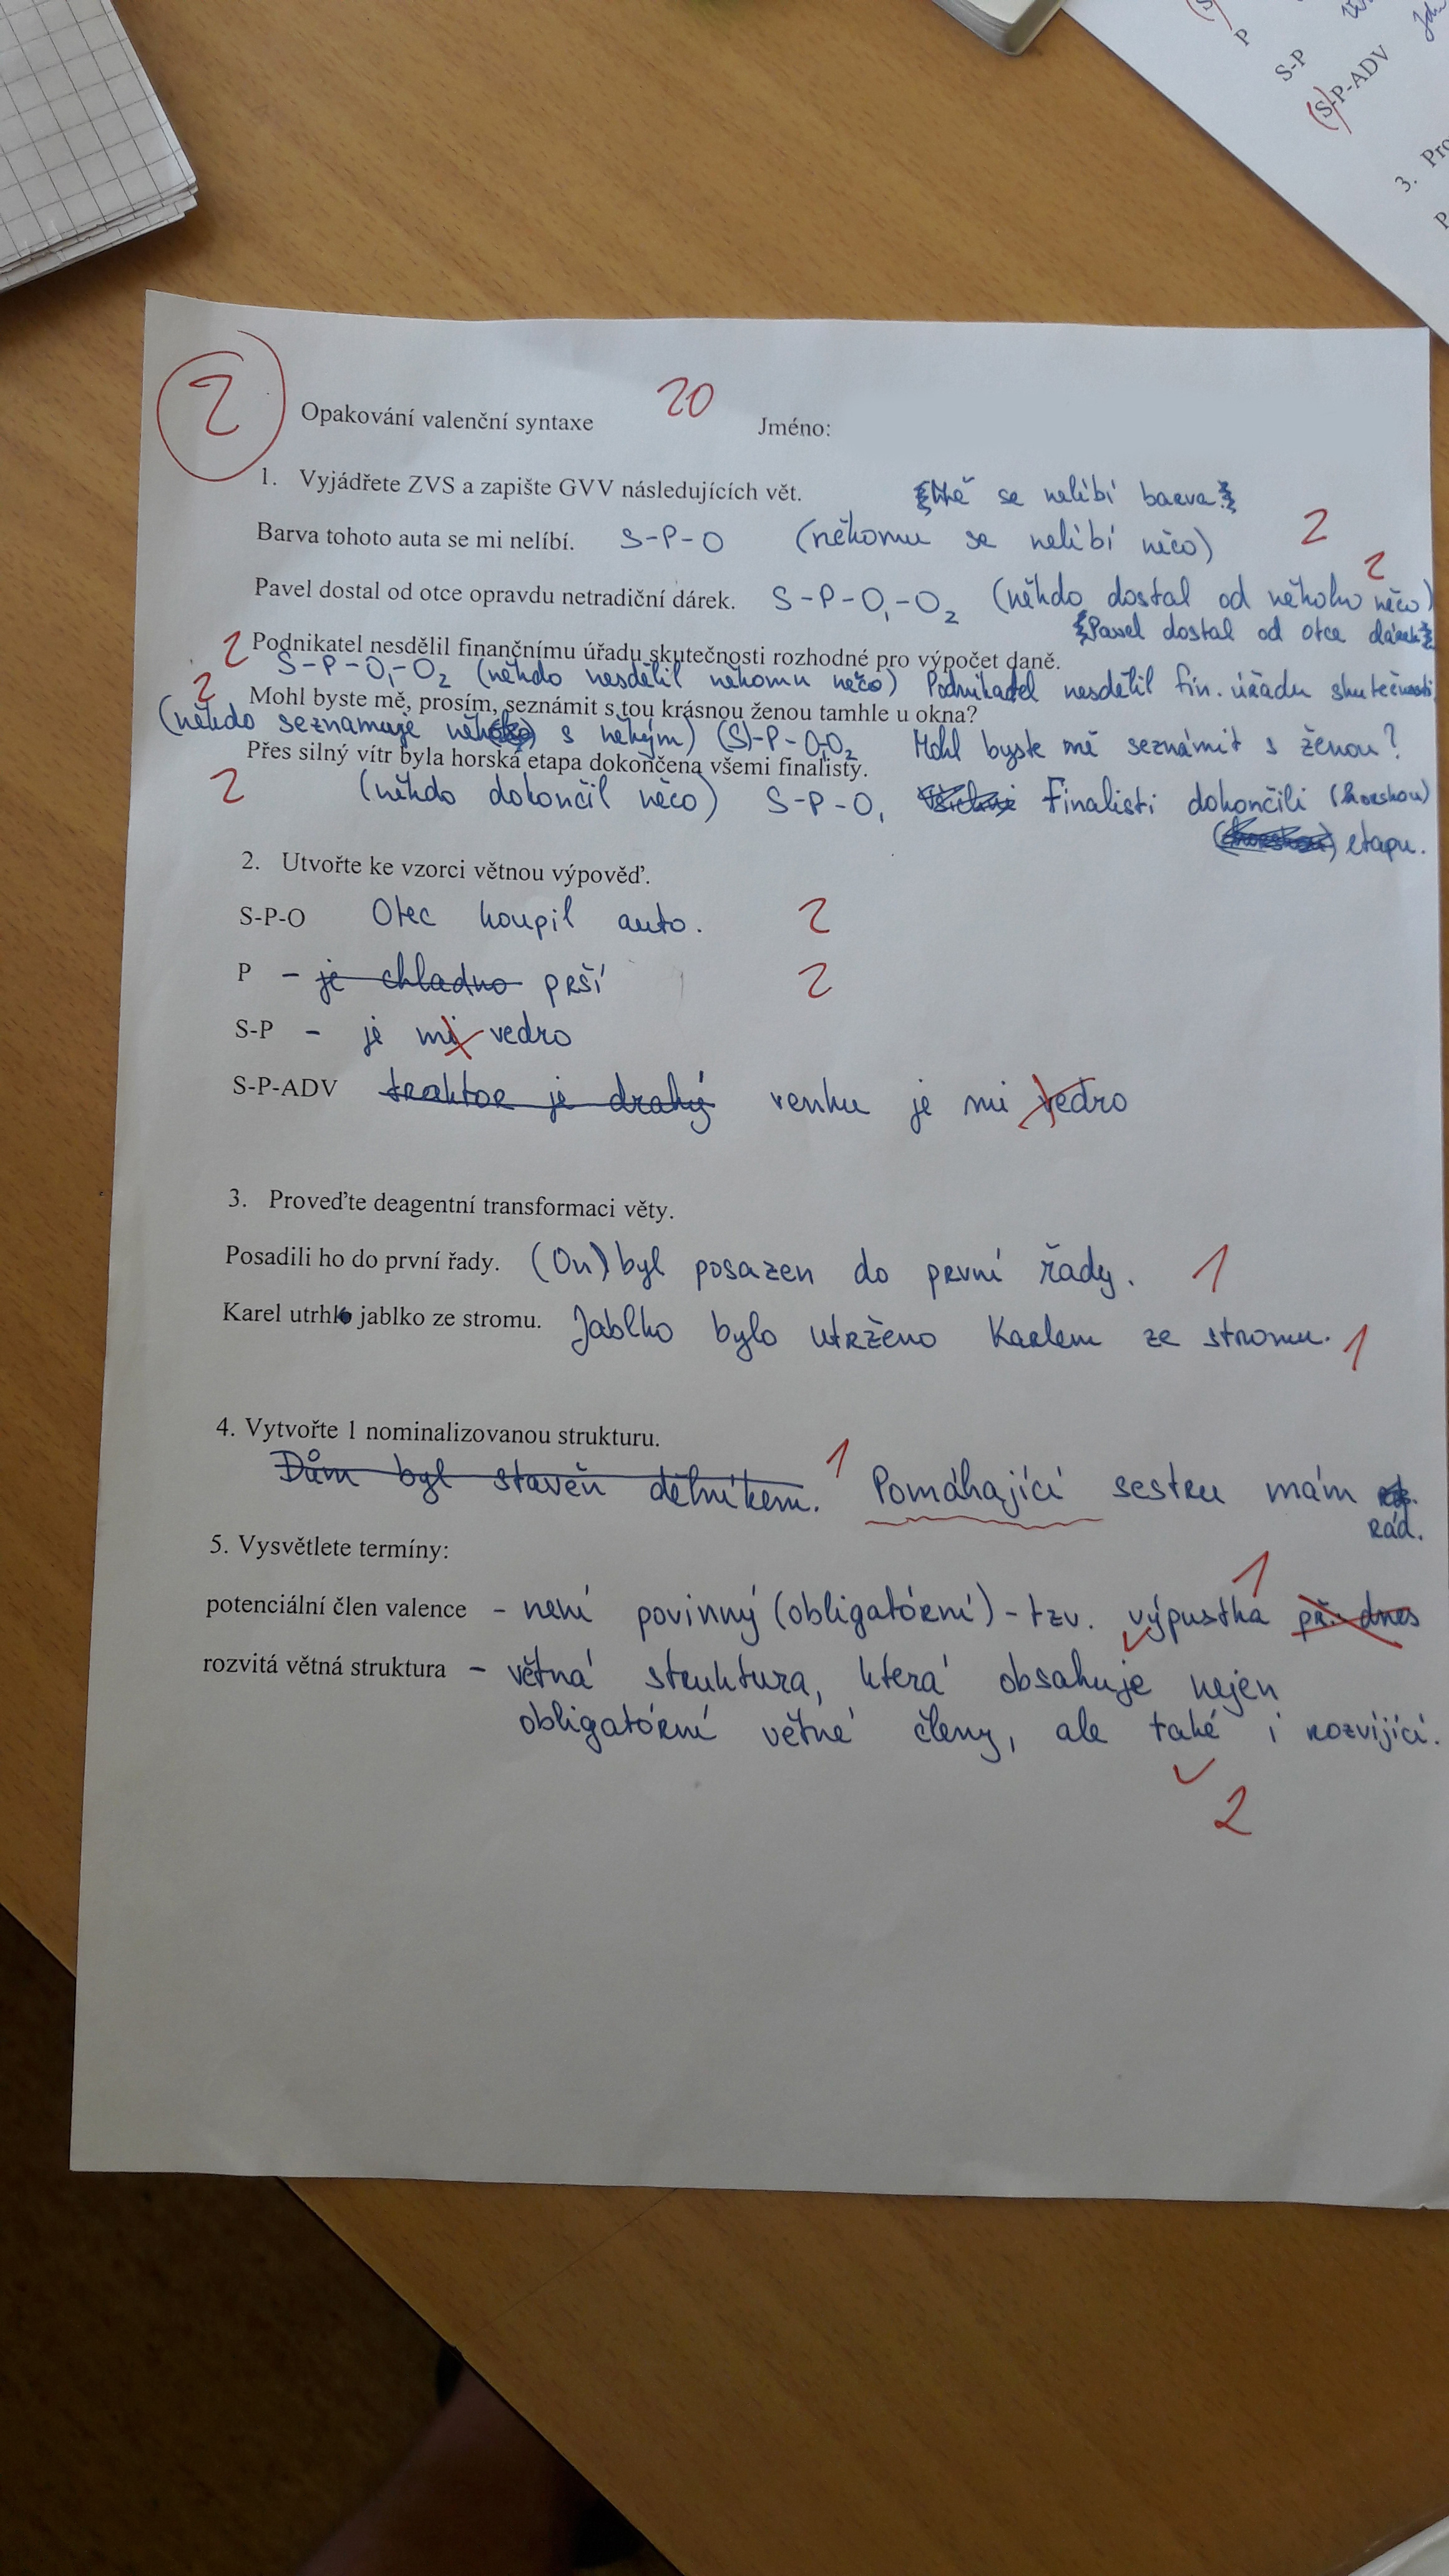 P
S-P
(S)-P-ADV
3. Pro
P
2
Opakování valenční syntaxe 20 Jméno:
1. Vyjádřete ZVS a zapište GVV následujících vět. se nelíbí barva
Barva tohoto auta se mi nelíbí. S-P-O (někomu se nelíbí něco) 2
2
Pavel dostal od otce opravdu netradiční dárek. S-P-O1-O2 (někdo dostal od někoho něco)
Pavel dostal od otce dárek
2 Podnikatel nesdělil finančnímu úřadu skutečnosti rozhodné pro výpočet daně.
S-P-O1-O2 (někdo nesdělil někomu něco) Podnikatel nesdělil fin. úřadu skutečnosti
2 Mohl byste mě, prosím, seznámit s tou krásnou ženou tamhle u okna?
(někdo seznamuje s někým) (S)-P-O1O2 Mohl byste mě seznámit s ženou?
Přes silný vítr byla horská etapa dokončena všemi finalisty.
2 (někdo dokončil něco) S-P-O1 Všichni Finalisti dokončili (horskou)
etapu.
2. Utvořte ke vzorci větnou výpověď.
S-P-O Otec koupil auto. 2
P – je chladno prší 2
S-P – je mi vedro
S-P-ADV traktor je drahý venku je mi vedro
3. Proveďte deagentní transformaci věty.
Posadili ho do první řady. (On) byl posazen do první řady. 1
Karel utrhl jablko ze stromu. Jablko bylo utrženo Karlem ze stromu. 1
4. Vytvořte 1 nominalizovanou strukturu.
Dům byl stavěn dělníkem. 1 Pomáhající sestru mám
rád.
5. Vysvětlete termíny:
1
potenciální člen valence – není povinný (obligatórní) – tzv. výpustka př. dnes
rozvitá větná struktura – větná struktura, která obsahuje nejen
obligatórní větné členy, ale také i rozvíjící.
2